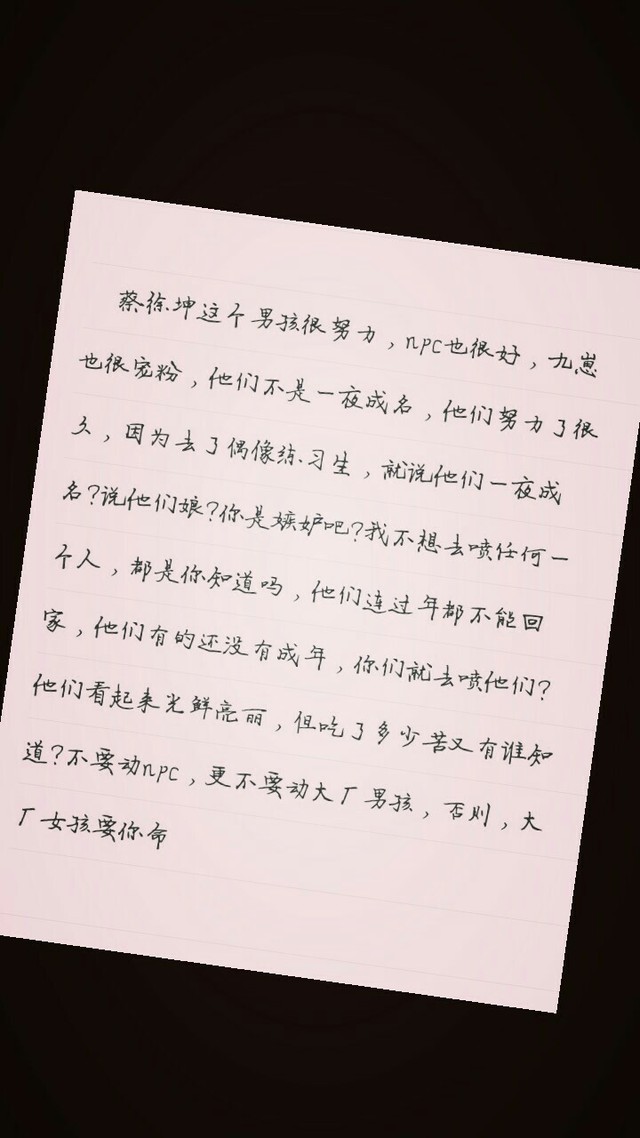 蔡徐坤这个男孩很努力，npc也很好，九崽
也很宠粉，他们不是一夜成名，他们努力了很
久，因为去了偶像练习生，就说他们一夜成
名?说他们娘?你是嫉妒吧?我不想去喷任何一
个人，都是你知道吗，他们连过年都不能回
家，他们有的还没有成年，你们就去喷他们?
他们看起来光鲜亮丽，但吃了多少苦又有谁知
道?不要动npc，更不要动大厂男孩，否则，大
厂女孩要你命